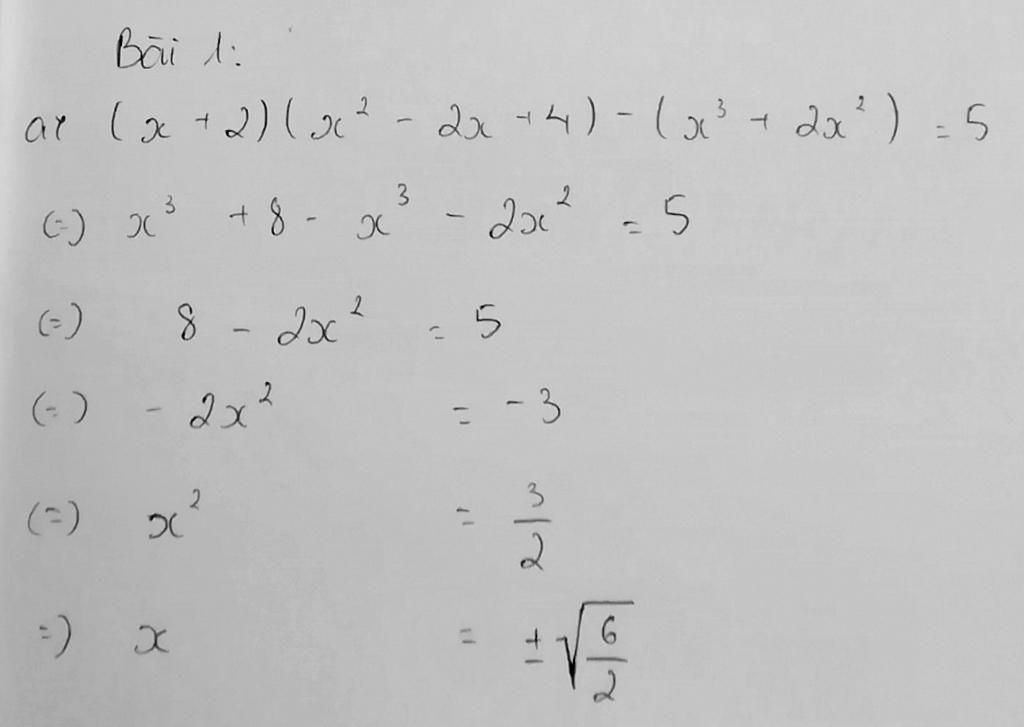 Bài 1:
a, (x + 2)(x² - 2x + 4) - (x³ + 2x²) = 5
(=) x³ + 8 - x³ - 2x² = 5
(=) 8 - 2x² = 5
(=) - 2x² = -3
(=) x² = 3/2
=) x = ±√(6/2)